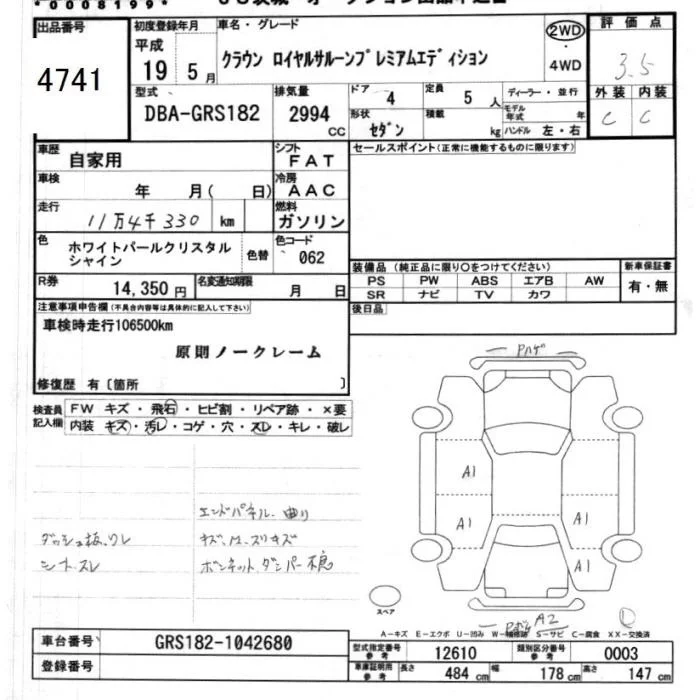 *0008199*
出品番号 4741
初度登録年月 平成 19 5月
車名・グレード クラウン ロイヤルサルーンプレミアムエディション
2WD ・ 4WD
評価点 3.5
外装 C 内装 C
型式 DBA-GRS182
排気量 2994 cc
ドア 4 定員 5 人
形状 セダン 積載 kg
ディーラー・並行
モデル年式 年
ハンドル 左・右
車歴 自家用
シフト FAT
セールスポイント(正常に機能するものに限ります)
車検 年 月( 日)
冷房 AAC
走行 11万4千330 km
燃料 ガソリン
色 ホワイトパールクリスタルシャイン
色替
色コード 062
R券 14,350円
名変通知期限 月 日
装備品(純正品に限り○をつけてください)
PS PW ABS エアB AW
SR ナビ TV カワ
新車保証書 有・無
後日品
注意事項申告欄(不具合内容等は具体的に記入して下さい)
車検時走行106500km
原則ノークレーム
修復歴 有〔箇所 〕
検査員記入欄
FW キズ・飛石・ヒビ割・リペア跡・×要
内装 キズ・汚レ・コゲ・穴・スレ・キレ・破レ
Pハゲ
A1
A1 A1
A1
エンドパネル、曲り
ダッシュ板、ワレ
シートスレ
ボンネット、ダンパー不良
スペア
A2
A-キズ E-エクボ U-凹み W-補修跡 S-サビ C-腐食 XX-交換済
車台番号 GRS182-1042680
登録番号
型式指定番号 参考 12610
類別区分番号 参考 0003
車庫証明用 参考 長さ 484 cm 幅 178 cm 高さ 147 cm